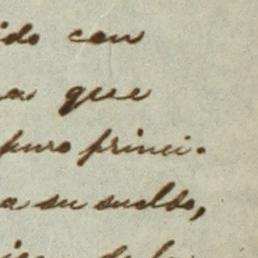 ido con
a que
puro princi-
a su sueldo,